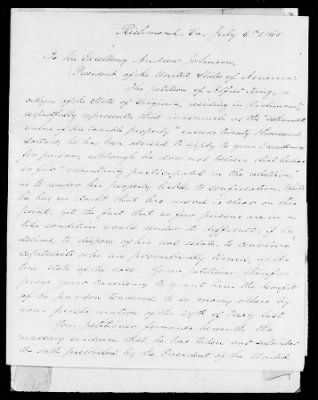 Richmond, Va. July 6th 1865
To his Excellency Andrew Johnson,
President of the United States of America:
The petition of Alfred King, a
citizen of the State of Virginia, residing in Richmond,
respectfully represents that inasmuch as the "estimated
value of his taxable property" exceeds twenty thousand
dollars, he has been advised to apply to your Excellency
for pardon, although he does not believe that he has
so far "voluntarily participated in the rebellion"
as to render his property liable to confiscation. While
he has no doubt that his record is clear on this
point, yet the fact that so few persons are in a
like condition would render it difficult, if he
desired to dispose of his real estate, to convince
capitalists who are proverbially timid, of the
true state of the case. Your petitioner therefore
prays your Excellency to grant him the benefit
of the pardon tendered to so many others by
your proclamation of the 29th of May last.
Your petitioner forwards herewith the
necessary evidence that he has taken and subscribed
the oath prescribed by the President of the United